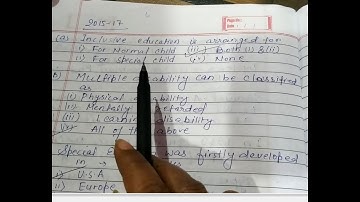 2015-17
(a) Inclusive education is arranged for
i) For Normal child (iii) Both i) & ii)
ii) For Special child iv) None
b) Multiple disability can be classified
as
i) Physical disability
ii) Mentally Retarded
iii) Learning disability
iv) All of the above
Special was firstly developed
in
i) U.S.A
ii) Europe